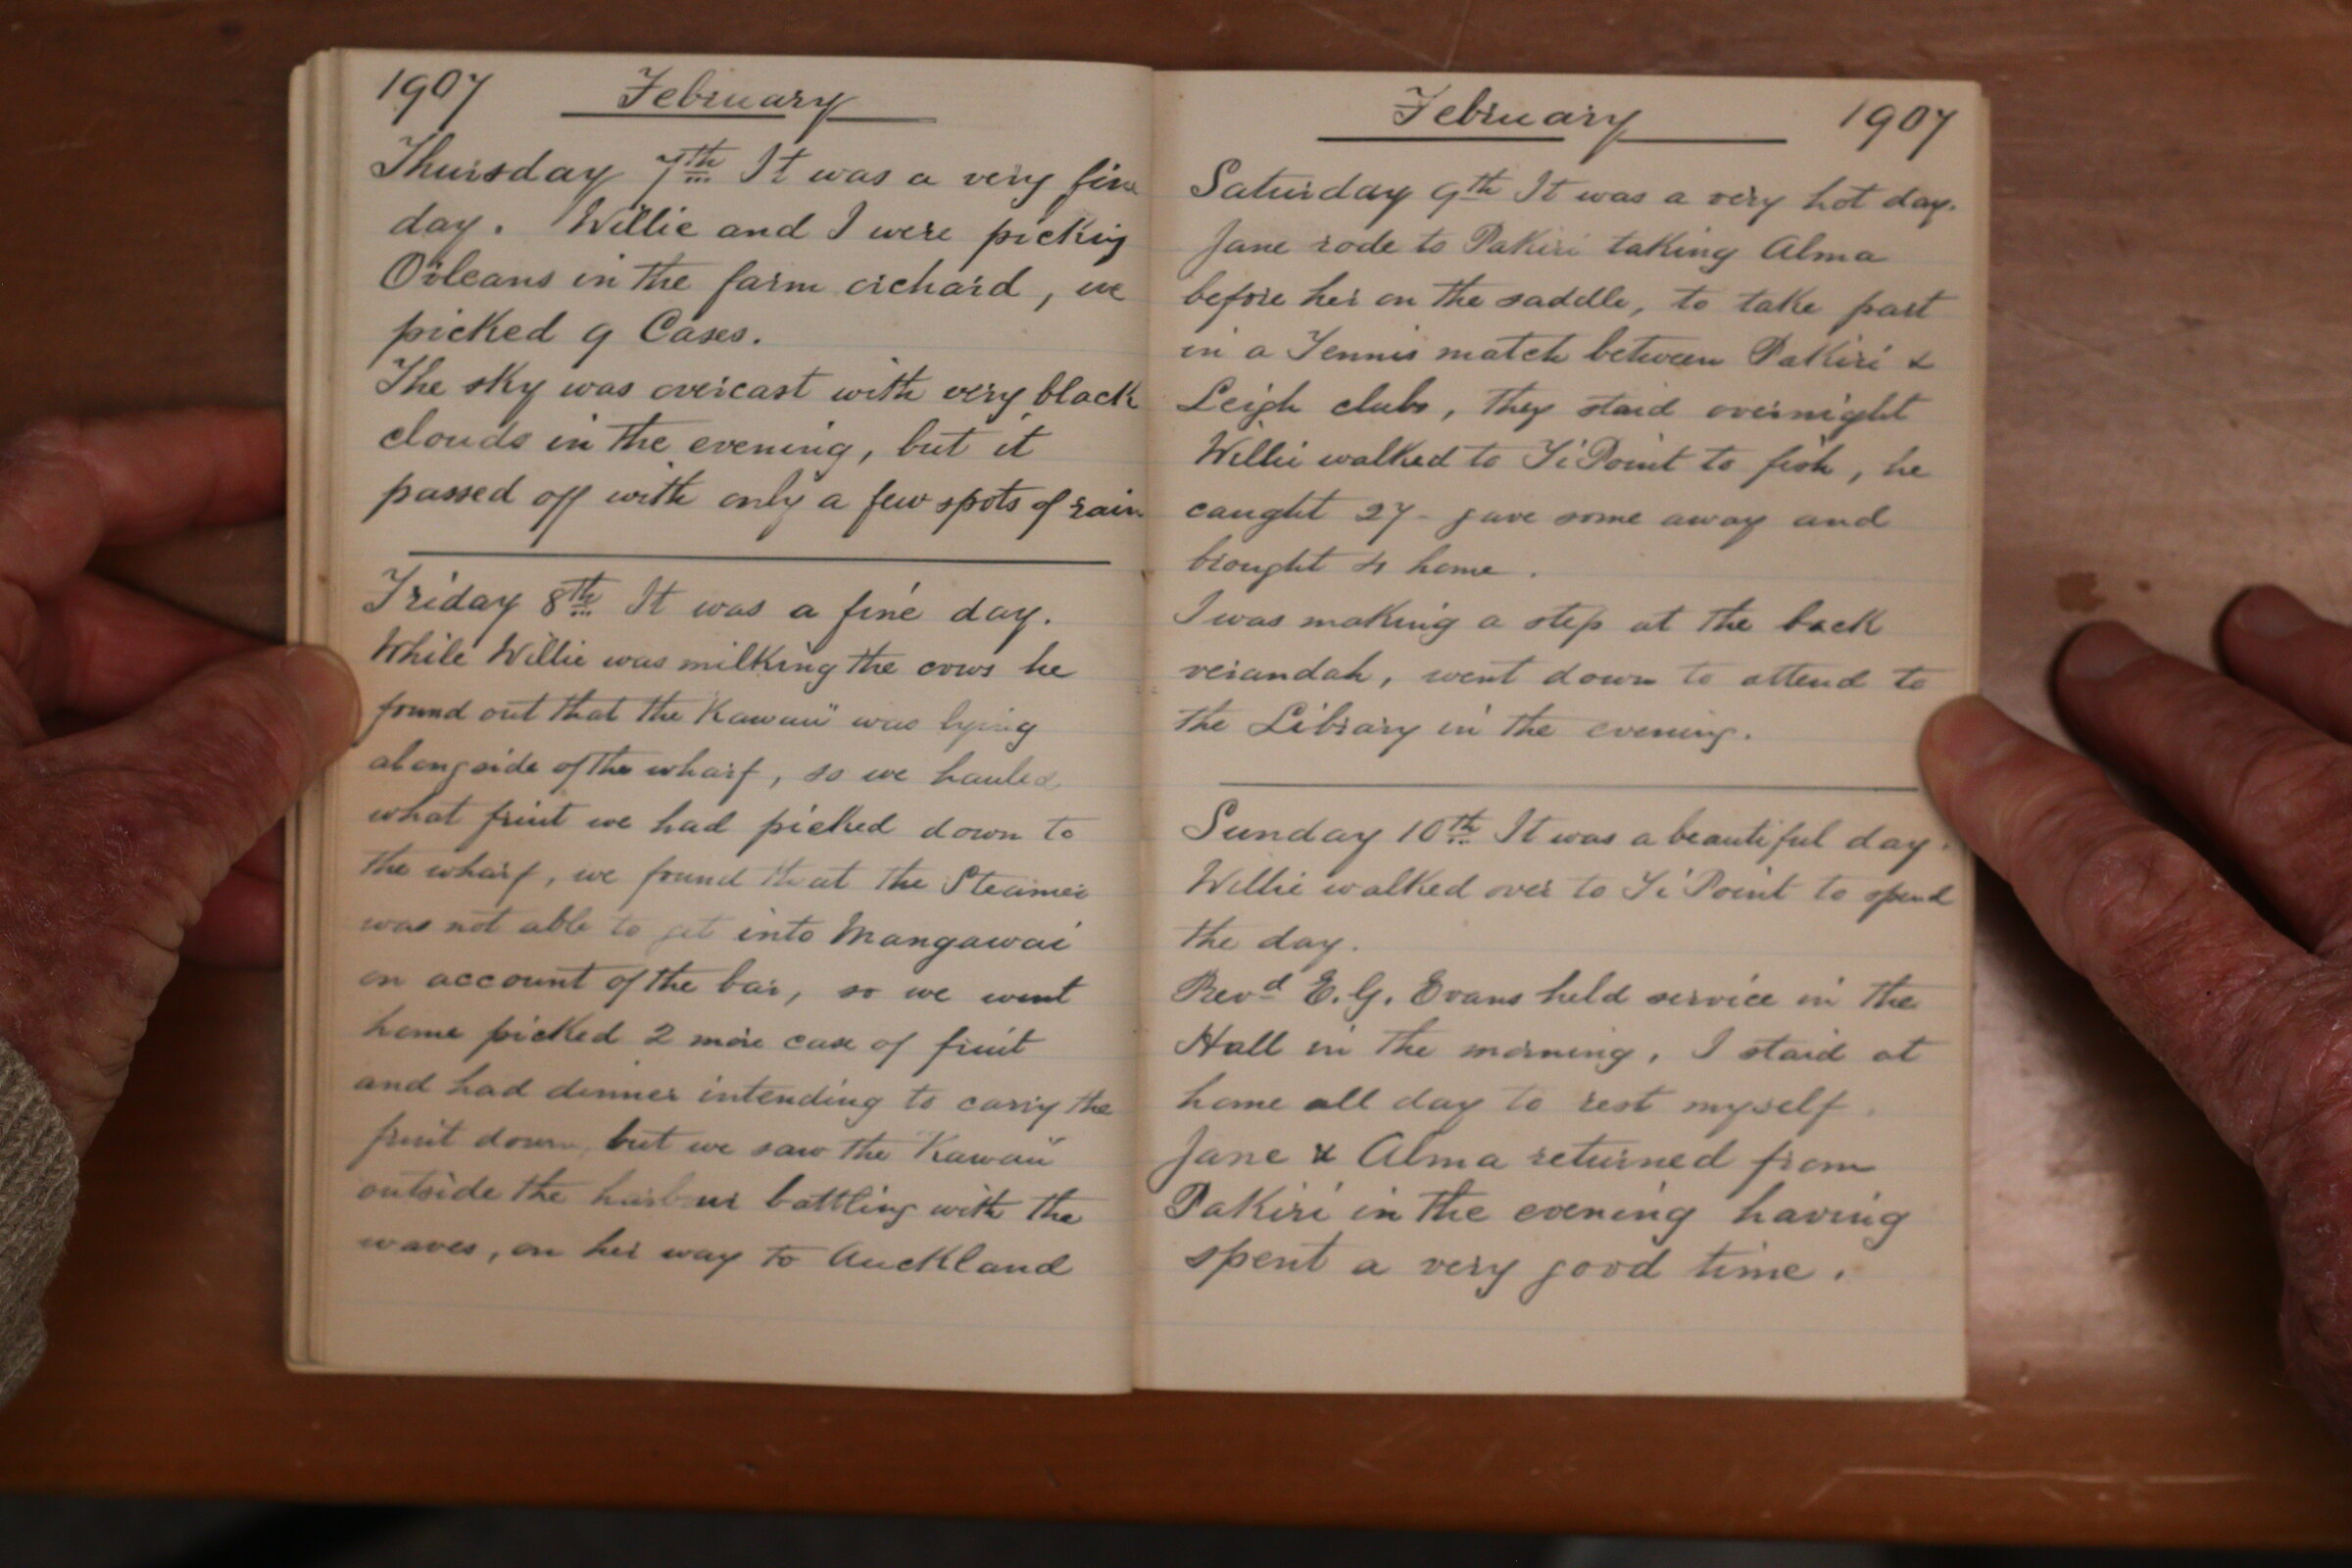 1907 February
Thursday 7th It was a very fine
day. Willie and I were picking
Orleans in the farm orchard, we
picked 9 Cases.
The sky was overcast with very black
clouds in the evening, but it
passed off with only a few spots of rain
Friday 8th It was a fine day.
While Willie was milking the cows he
found out that the "Kawau" was lying
alongside of the wharf, so we hauled
what fruit we had picked down to
the wharf, we found that the Steamer
was not able to get into Mangawai
on account of the bar, so we went
home picked 2 more case of fruit
and had dinner intending to carry the
fruit down, but we saw the "Kawau"
outside the harbour battling with the
waves, on her way to Auckland
February 1907
Saturday 9th It was a very hot day.
Jane rode to Pakiri taking Alma
before her on the saddle, to take part
in a Tennis match between Pakiri &
Leigh clubs, they staid overnight
Willie walked to Ti Point to fish, he
caught 27 - gave some away and
brought 4 home.
I was making a step at the back
verandah, went down to attend to
the Library in the evening.
Sunday 10th It was a beautiful day.
Willie walked over to Ti Point to spend
the day.
Revd E. G. Evans held service in the
Hall in the morning, I staid at
home all day to rest myself.
Jane & Alma returned from
Pakiri in the evening having
spent a very good time.